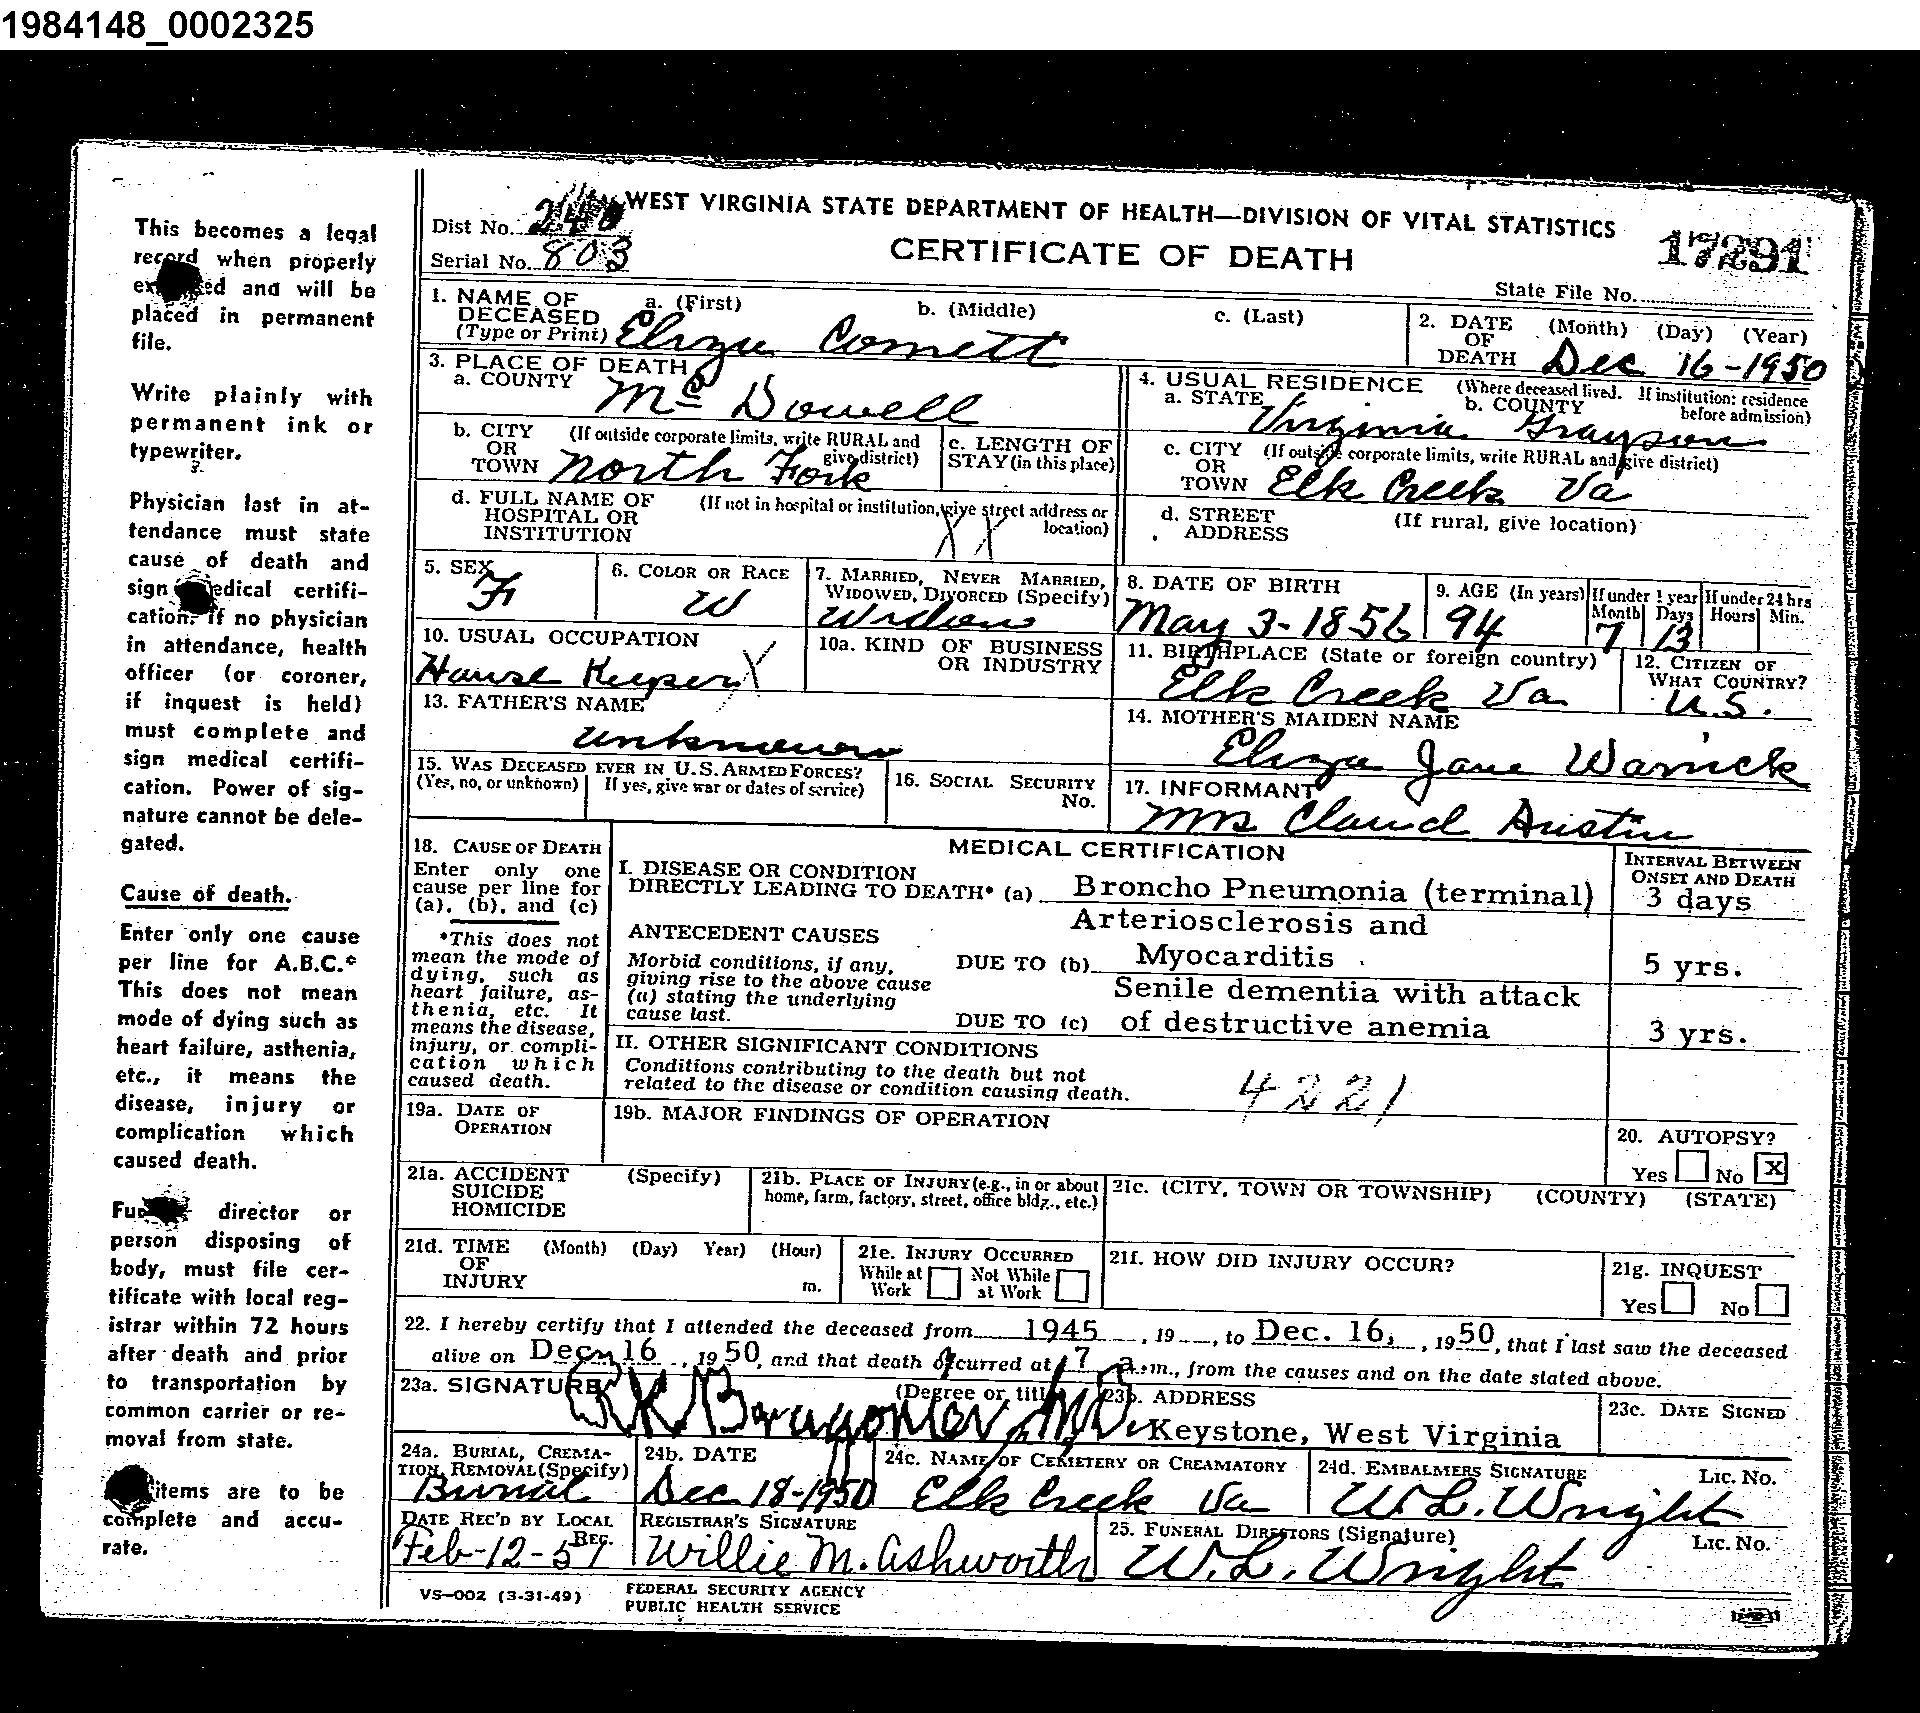 1984148_0002325
This becomes a legal
record when properly
and will be
placed in permanent
file.
Write plainly with
permanent ink or
typewriter.
Physician last in at-
tendance must state
cause of death and
sign medical certifi-
cation. If no physician
in attendance, health
officer (or coroner,
if inquest is held)
must complete and
sign medical certifi-
cation. Power of sig-
nature cannot be dele-
gated.
Cause of death.
Enter only one cause
per line for A.B.C.*
This does not mean
mode of dying such as
heart failure, asthenia,
etc., it means the
disease, injury or
complication which
caused death.
director or
person disposing of
body, must file cer-
tificate with local reg-
istrar within 72 hours
after death and prior
to transportation by
common carrier or re-
moval from state.
items are to be
complete and accu-
rate.
WEST VIRGINIA STATE DEPARTMENT OF HEALTH—DIVISION OF VITAL STATISTICS
Dist No. 240
Serial No. 803
CERTIFICATE OF DEATH
17291
State File No.
1. NAME OF DECEASED (Type or Print) a. (First) b. (Middle) c. (Last)
Eliza Cornett
2. DATE OF DEATH (Month) (Day) (Year)
Dec 16-1950
3. PLACE OF DEATH
a. COUNTY Mc Dowell
b. CITY OR TOWN (If outside corporate limits, write RURAL and give district)
North Fork
c. LENGTH OF STAY (in this place)
d. FULL NAME OF HOSPITAL OR INSTITUTION (If not in hospital or institution, give street address or location)
X X
4. USUAL RESIDENCE (Where deceased lived. If institution: residence before admission)
a. STATE Virginia b. COUNTY Grayson
c. CITY OR TOWN (If outside corporate limits, write RURAL and give district)
Elk Creek Va
d. STREET ADDRESS (If rural, give location)
5. SEX F
6. COLOR OR RACE W
7. MARRIED, NEVER MARRIED, WIDOWED, DIVORCED (Specify)
Widow
8. DATE OF BIRTH May 3-1856
9. AGE (In years) 94
If under 1 year Month 7 Days 13
If under 24 hrs Hours Min.
10. USUAL OCCUPATION House Keeper X
10a. KIND OF BUSINESS OR INDUSTRY
11. BIRTHPLACE (State or foreign country)
Elk Creek Va
12. CITIZEN OF WHAT COUNTRY? U.S.
13. FATHER'S NAME
unknown
14. MOTHER'S MAIDEN NAME
Eliza Jane Warrick
15. WAS DECEASED EVER IN U.S. ARMED FORCES?
(Yes, no, or unknown) If yes, give war or dates of service)
16. SOCIAL SECURITY No.
17. INFORMANT
Mrs Claud Austin
18. CAUSE OF DEATH
Enter only one
cause per line for
(a), (b), and (c)
*This does not
mean the mode of
dying, such as
heart failure, as-
thenia, etc. It
means the disease,
injury, or compli-
cation which
caused death.
MEDICAL CERTIFICATION
INTERVAL BETWEEN ONSET AND DEATH
I. DISEASE OR CONDITION
DIRECTLY LEADING TO DEATH* (a) Broncho Pneumonia (terminal) 3 days
ANTECEDENT CAUSES
Morbid conditions, if any,
giving rise to the above cause
(a) stating the underlying
cause last.
Arteriosclerosis and
DUE TO (b) Myocarditis 5 yrs.
Senile dementia with attack
DUE TO (c) of destructive anemia 3 yrs.
II. OTHER SIGNIFICANT CONDITIONS
Conditions contributing to the death but not
related to the disease or condition causing death.
4221
19a. DATE OF OPERATION
19b. MAJOR FINDINGS OF OPERATION
20. AUTOPSY?
Yes No X
21a. ACCIDENT SUICIDE HOMICIDE (Specify)
21b. PLACE OF INJURY (e.g., in or about home, farm, factory, street, office bldg., etc.)
21c. (CITY, TOWN OR TOWNSHIP) (COUNTY) (STATE)
21d. TIME OF INJURY (Month) (Day) Year) (Hour) m.
21e. INJURY OCCURRED
While at Work Not While at Work
21f. HOW DID INJURY OCCUR?
21g. INQUEST
Yes No
22. I hereby certify that I attended the deceased from 1945, 19, to Dec. 16, 1950, that i last saw the deceased
alive on Dec. 16, 1950, and that death occurred at 7 a.m., from the causes and on the date stated above.
23a. SIGNATURE (Degree or title) M.D.
23b. ADDRESS
Keystone, West Virginia
23c. DATE SIGNED
24a. BURIAL, CREMATION, REMOVAL (Specify)
Burial
24b. DATE
Dec 18-1950
24c. NAME OF CEMETERY OR CREAMATORY
Elk Creek Va
24d. EMBALMERS SIGNATURE Lic. No.
W. L. Wright
DATE REC'D BY LOCAL REG.
Feb-12-51
REGISTRAR'S SIGNATURE
Willie M. Ashworth
25. FUNERAL DIRECTORS (Signature) Lic. No.
W. L. Wright
VS—002 (3-31-49)
FEDERAL SECURITY AGENCY
PUBLIC HEALTH SERVICE